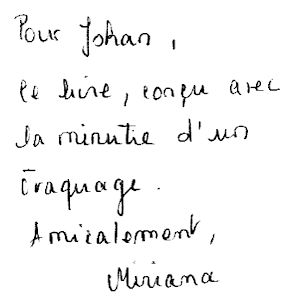 Pour Johan,
ce livre, conçu avec
la minutie d'un
traquage.
Amicalement,
Miriana